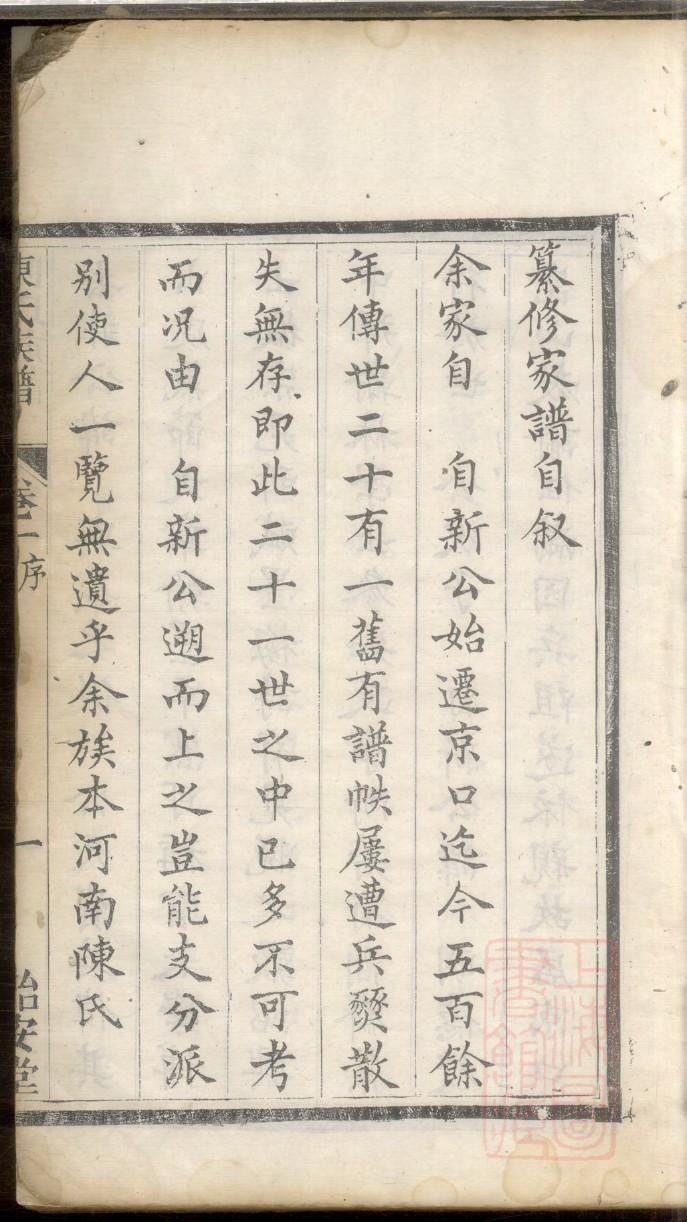 纂修家譜自叙
余家自　自新公始遷京口迄今五百餘
年傳世二十有一舊有譜帙屢遭兵燹散
失無存即此二十一世之中已多不可考
而况由　自新公遡而上之豈能支分派
別使人一覽無遺乎余族本河南陳氏
陳氏族譜
卷一序
一
詒安堂
上海圖書館藏